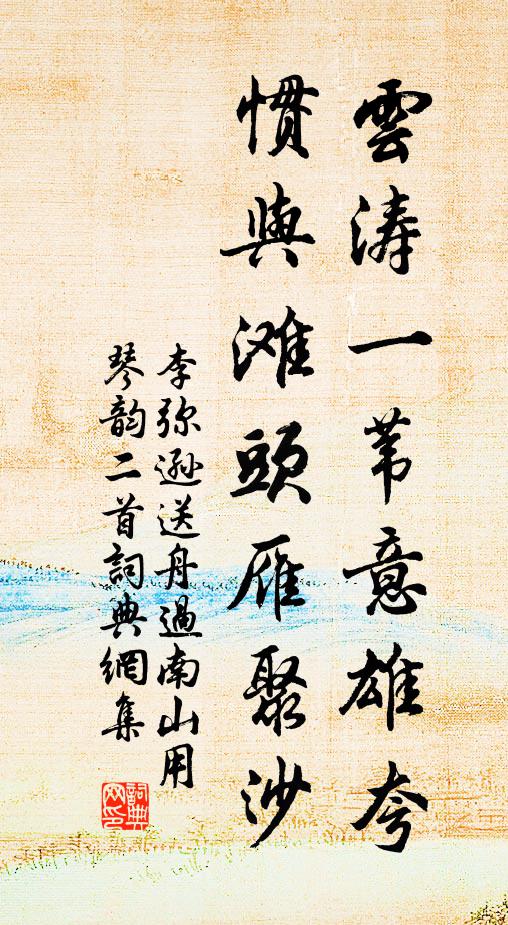 雲涛一苇意雄夸
惯與滩頭雁聚沙
李弥逊送舟過南山用
琴韵二首詞典網集
詞典网印